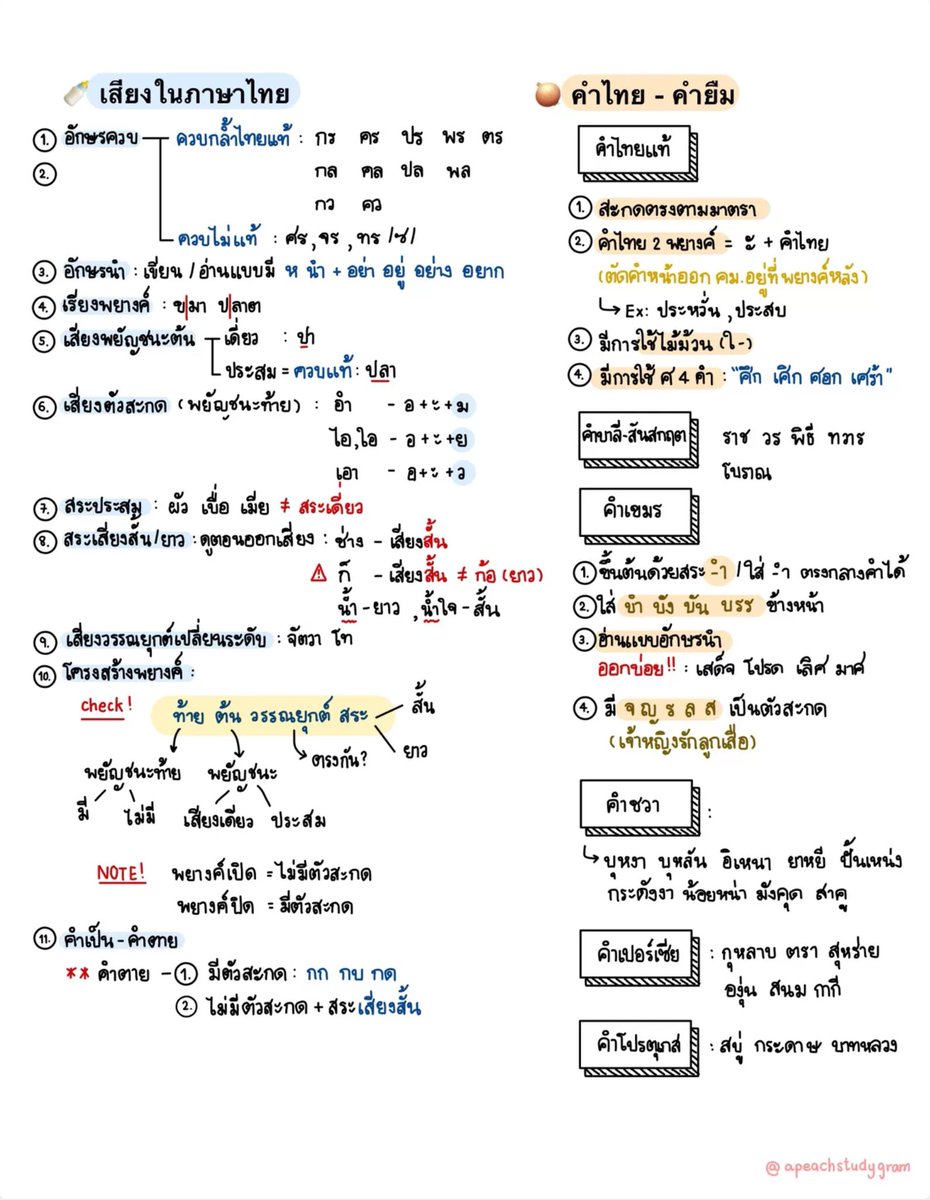 เสียงในภาษาไทย
1. อักษรควบ ควบกล้ำไทยแท้ : กร คร ปร พร ตร
2. กล คล ปล พล
กว คว
ควบไม่แท้ : ศร , จร , ทร /ซ/
3. อักษรนำ : เขียน / อ่านแบบมี ห นำ + อย่า อยู่ อย่าง อยาก
4. เรียงพยางค์ : ข|มา ป|ลาตา
5. เสียงพยัญชนะต้น เดี่ยว : ปา
ประสม = ควบแท้ : ปลา
6. เสียงตัวสะกด (พยัญชนะท้าย) : อำ - อ + ะ + ม
ไอ,ใอ - อ + ะ + ย
เอา - อ + ะ + ว
7. สระประสม : ผัว เบื่อ เมีย ≠ สระเดี่ยว
8. สระเสียงสั้น/ยาว : ดูตอนออกเสียง : ช่าง - เสียงสั้น
⚠ ก็ - เสียงสั้น ≠ ก้อ (ยาว)
น้ำ - ยาว , น้ำใจ - สั้น
9. เสียงวรรณยุกต์เปลี่ยนระดับ : จัตวา โท
10. โครงสร้างพยางค์ :
check! ท้าย ต้น วรรณยุกต์ สระ สั้น
ยาว
ตรงกัน?
พยัญชนะท้าย พยัญชนะ
มี ไม่มี เสียงเดียว ประสม
NOTE! พยางค์เปิด = ไม่มีตัวสะกด
พยางค์ปิด = มีตัวสะกด
11. คำเป็น - คำตาย
** คำตาย - 1. มีตัวสะกด : กก กบ กด
2. ไม่มีตัวสะกด + สระเสียงสั้น
คำไทย - คำยืม
คำไทยแท้
1. สะกดตรงตามมาตรา
2. คำไทย 2 พยางค์ = ะ + คำไทย
(ตัดคำหน้าออก คม.อยู่ที่พยางค์หลัง)
Ex: ประหวั่น , ประสบ
3. มีการใช้ไม้ม้วน (ใ-)
4. มีการใช้ ศ 4 คำ : "ศึก เศิก ศอก เศร้า"
คำบาลี-สันสกฤต ราช วร พิธี ทวาร
โบราณ
คำเขมร
1. ขึ้นต้นด้วยสระ -ำ / ใส่ -ำ ตรงกลางคำได้
2. ใส่ บำ บัง บัน บรร ข้างหน้า
3. อ่านแบบอักษรนำ
ออกบ่อย!! : เสด็จ โปรด เลิศ มาศ
4. มี จ ญ ร ล ส เป็นตัวสะกด
(เจ้าหญิงรักลูกเสือ)
คำชวา :
บุหงา บุหลัน อิเหนา ยาหยี ปั้นเหน่ง
กระดังงา น้อยหน่า มังคุด สาคู
คำเปอร์เซีย : กุหลาบ ตรา สุหร่าย
องุ่น สนม กากี
คำโปรตุเกส : สบู่ กระดาษ บาทหลวง
@apeachstudygram